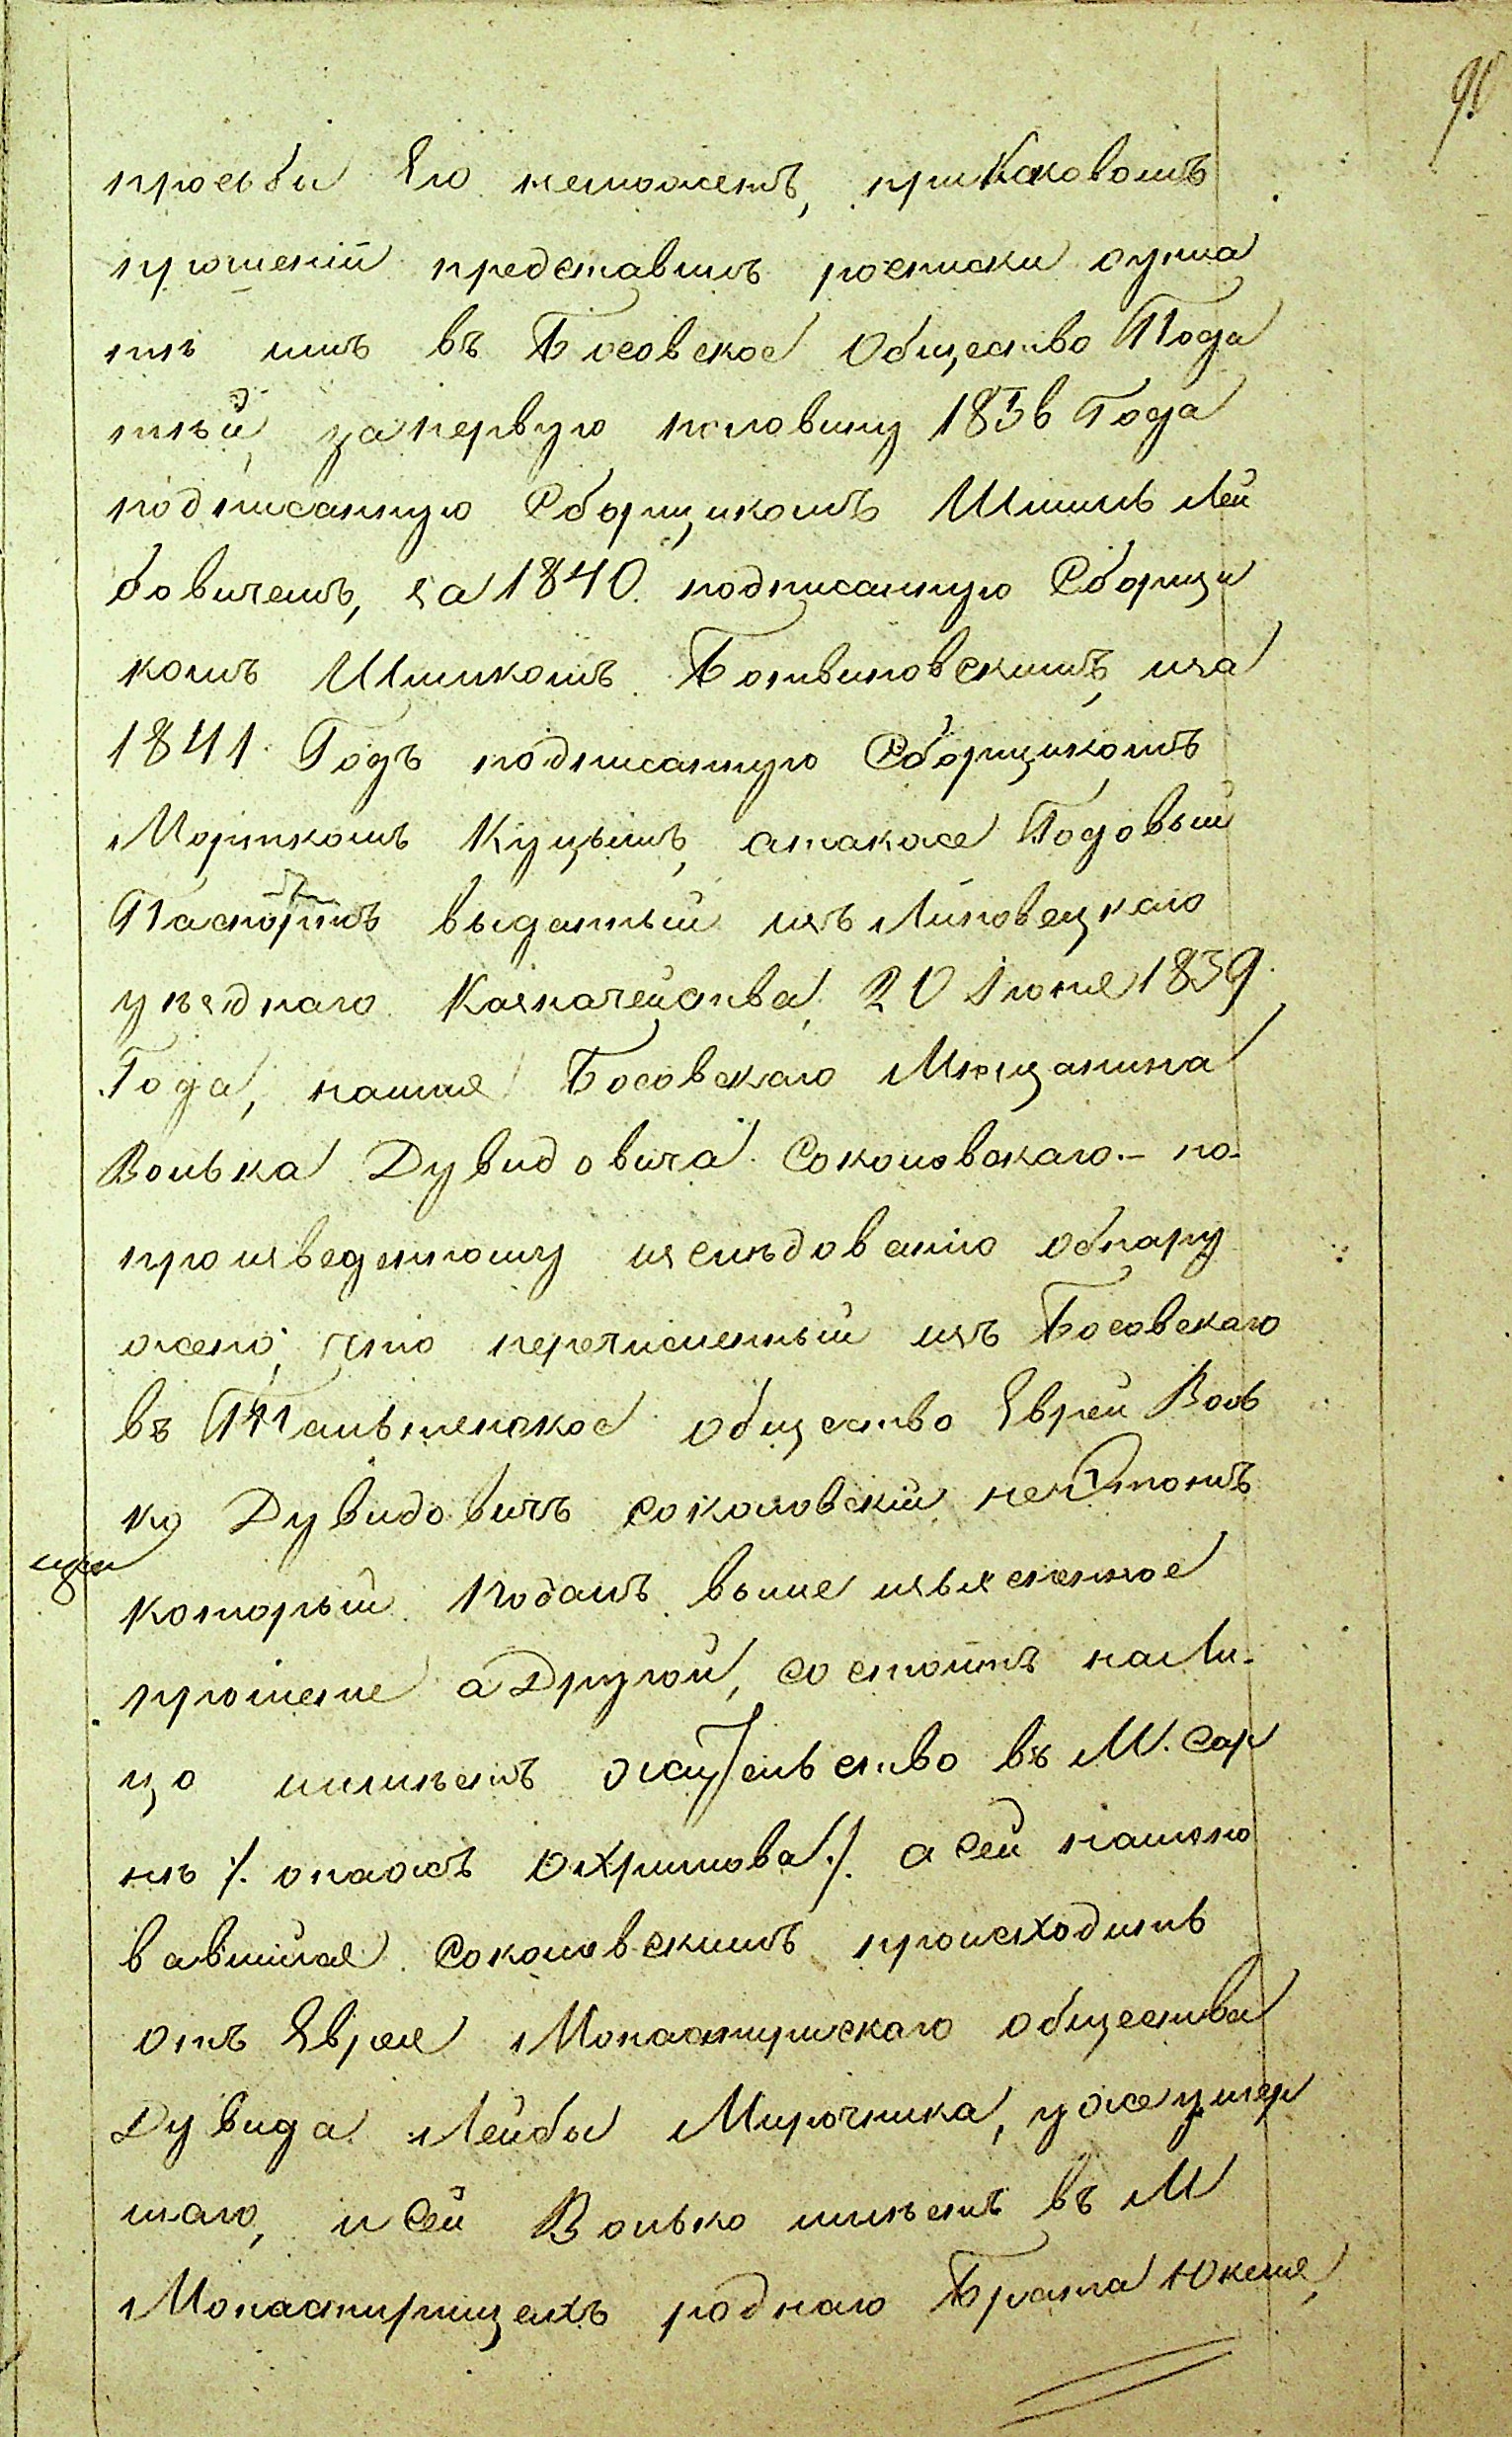 90
просьбы Его неможетъ, при каковомъ
прошеніи представилъ росписки оупла
тѣ имъ въ Босовское Общество Пода
тьй, за первую половину 1836 Года
подписанную Сборщикомъ Шмилъ Лей
бовичемъ, за 1840. подписанную Сборщи
комъ Ицикомъ Ботвиновскимъ, иза
1841 Годъ подписанную Сборщикомъ
Моришкомъ Куцымъ, атакже Годовый
Паспортъ выданный изъ Липовецкаго
уѣзднаго Казначейства, 20 Іюня 1839
Года, наимя Босовскаго Мѣщанина
Волька Дувидовича Соколовскаго.- по-
произведенному изслѣдованію обнару
жено, что перечисленный изъ Босовскаго
въ Тальненское общество Еврей Воль
ко Дувидовичъ Соколовскій не Тотъ
который подалъ выше изъясненное
прошеніе а Другой, состоитъ на Ли-
цо имѣетъ жительство въ М. Сар
нѣ /. онажъ Охримова ./. а сей наимено
вавшійся Соколовскимъ происходитъ
отъ Еврея Монастырискаго общества
Дувида Лейбы Мирочника, уже умер
шаго, и сей Волько имѣетъ въ М
Монастырищахъ роднаго Брата Юкеля,